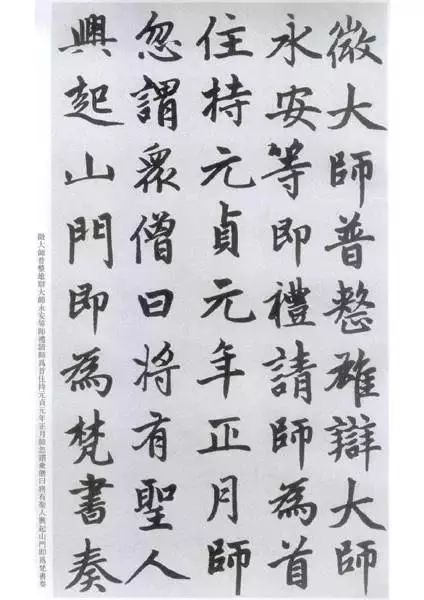 徽大師普整雄辯大師
永安等即禮請師為首
住持元貞元年正月師
忽謂眾僧曰將有聖人
興起山門即為梵書奏
徽大師普整雄辯大師永安等即禮請師爲首住持元貞元年正月師忽謂衆僧曰將有聖人興起山門即爲梵書奏